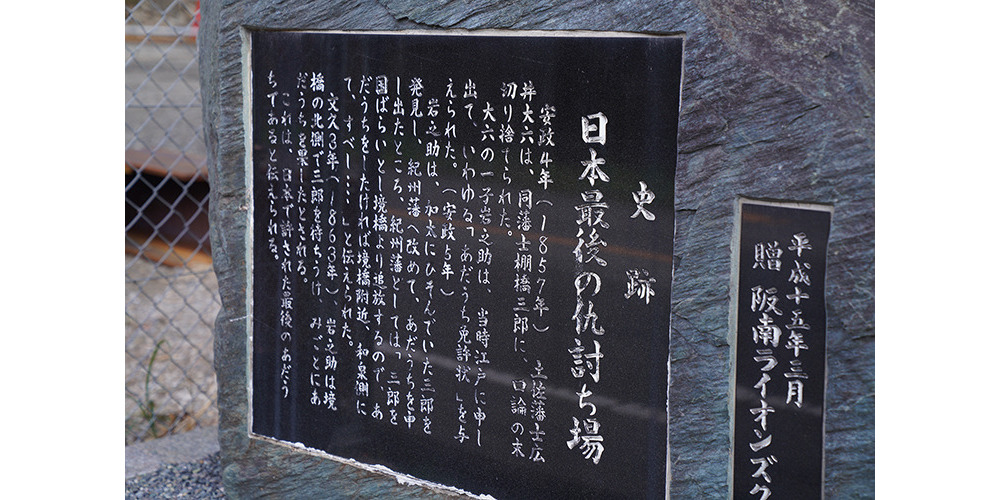 史跡
日本最後の仇討ち場
安政4年(1857年)土佐藩士広
井大六は、同藩士棚橋三郎に、口論の末
切り捨てられた。
大六の一子岩之助は、当時江戸に申し
出て、いわゆる「あだうち免許状」を与
えられた。(安政5年)
岩之助は、加太にひそんでいた三郎を
発見し、紀州藩へ改めて、あだうちを申
し出たところ、紀州藩としては「三郎を
国ばらいとし境橋より追放するので、あ
だうちをしたければ境橋附近、和泉側に
て、すべし……」と伝えられた。
文久3年(1863年)、岩之助は境
橋の北側で三郎を待ちうけ、みごとにあ
だうちを果したとされる。
これは、日本で許された最後のあだう
ちであると伝えられる。
平成十五年三月
贈 阪南ライオンズク